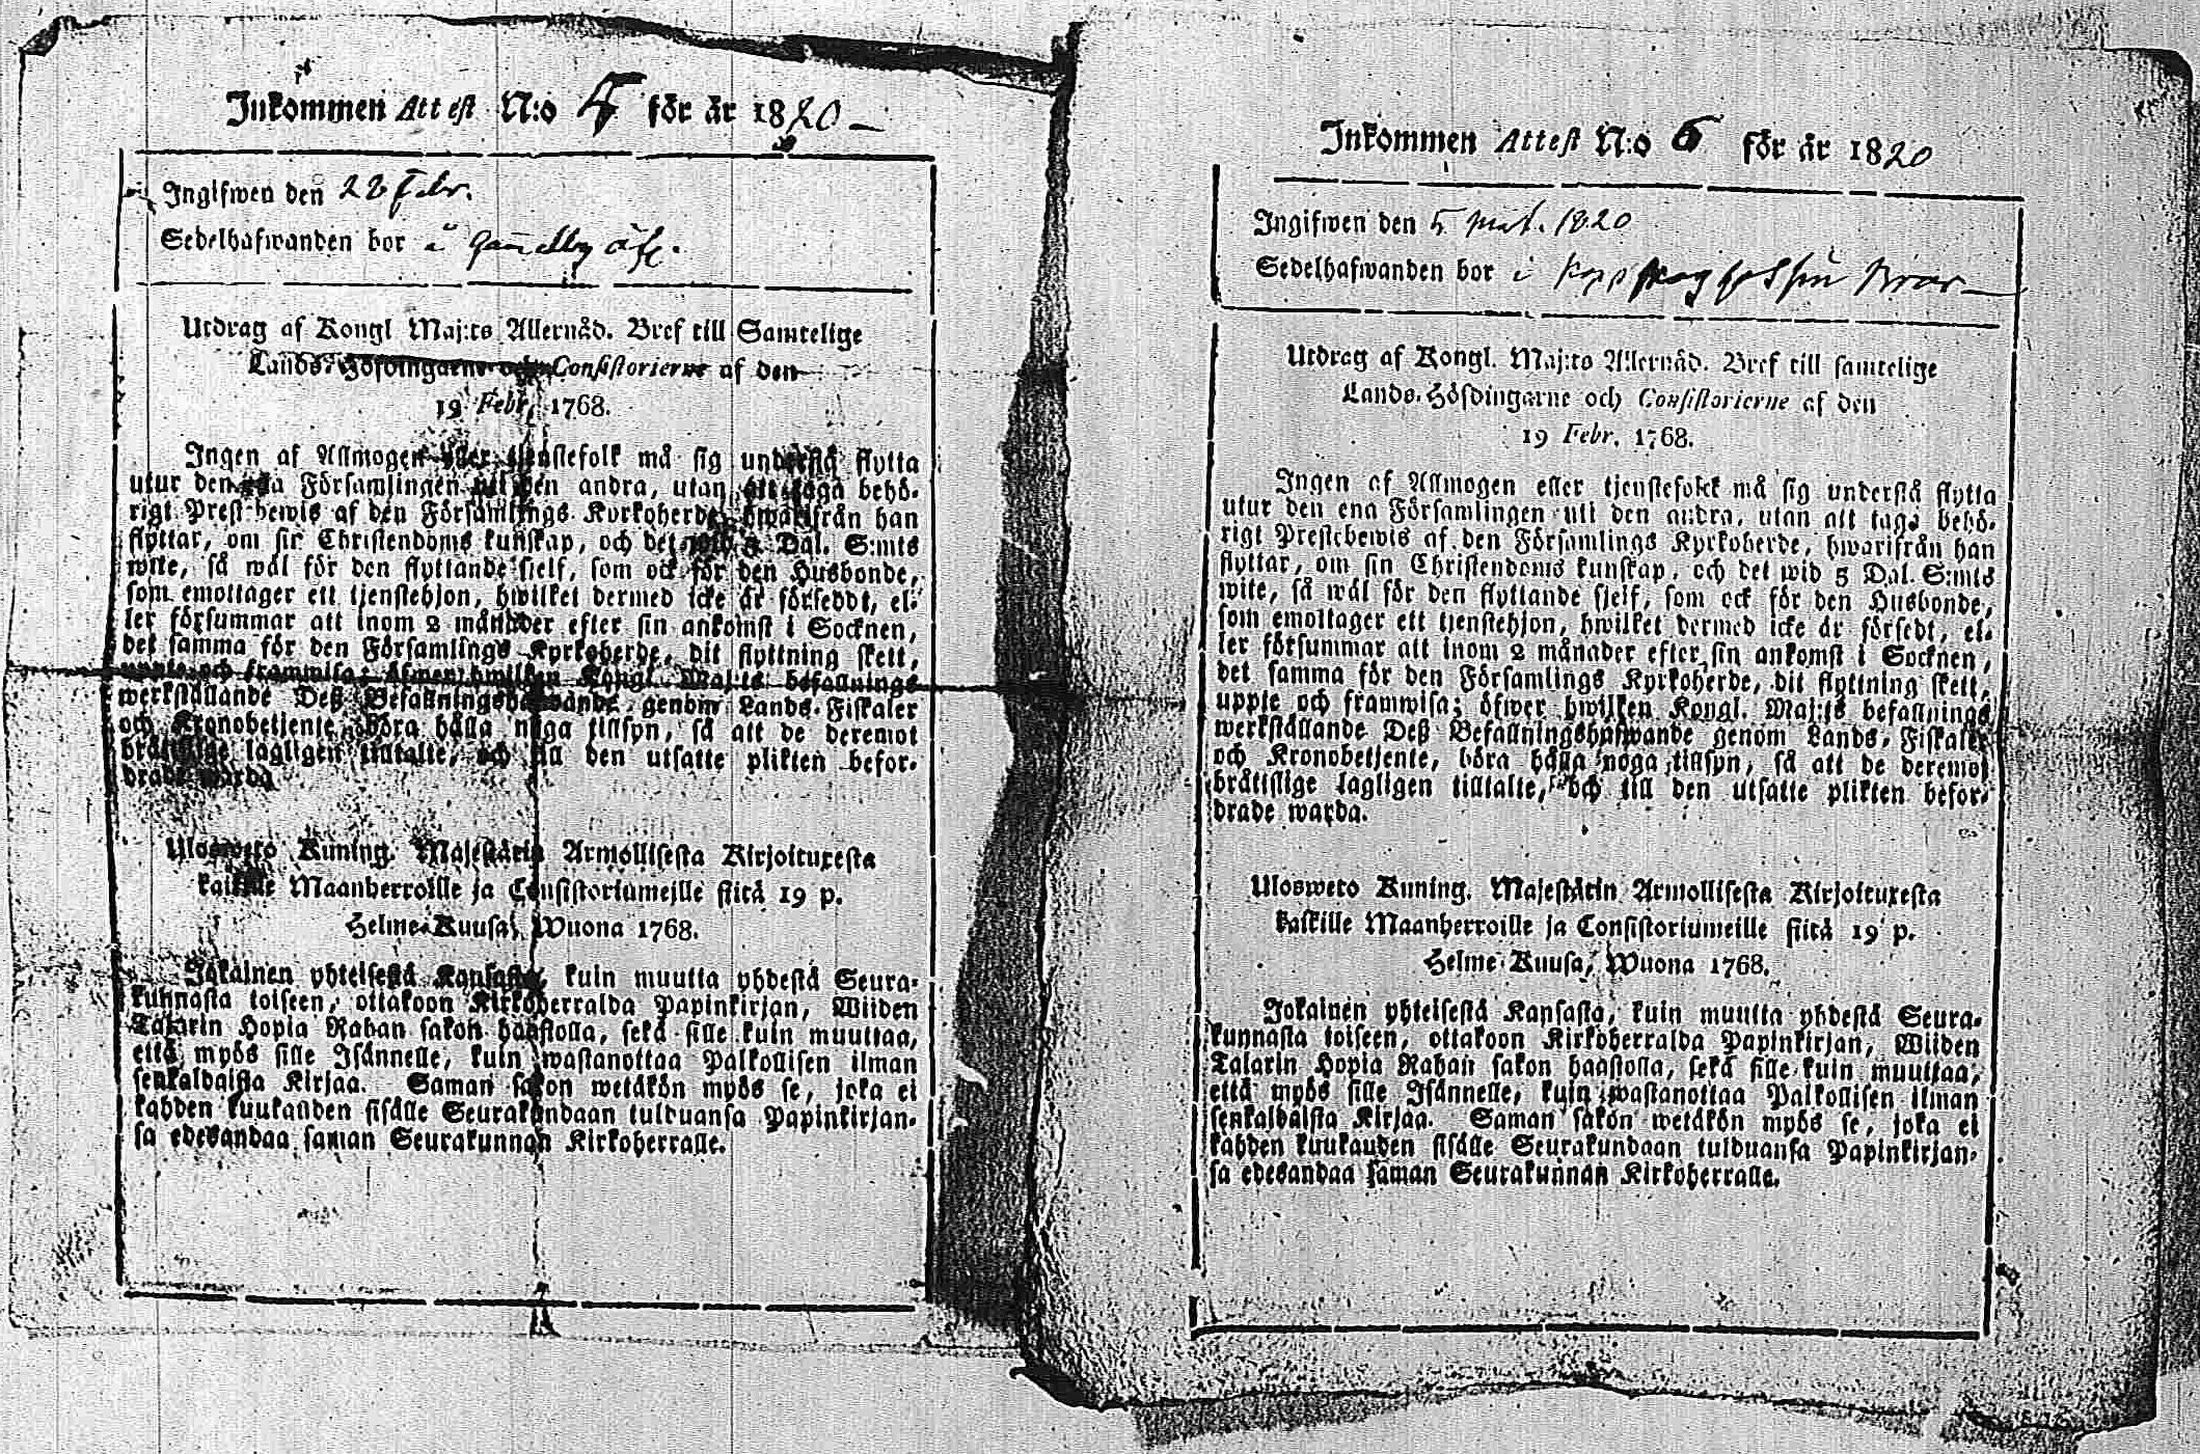 Inkommen Attest N:o 5 för år 1820
Ingifwen den 28 Febr.
Sedelhafwanden bor å
Utdrag af Kongl Maj:ts Allernåd. Bref till Samtelige
Lands-Höfdingarne och Consistorierne af den
19 Febr. 1768.
Ingen af Allmogen eller tjenstefolk må sig understå flytta
utur den ena Församlingen uti den andra, utan att taga behö-
rigt Prest-bewis af den Församlings Kyrkoherde, hwarifrån han
flyttar, om sin Christendoms kunskap, och det wid 5 Dal. S:mts
wite, så wäl för den flyttande sjelf, som ock för den Husbonde,
som emottager ett tjenstehjon, hwilket dermed icke är försedt, el-
ler försummar att inom 2 månader efter sin ankomst i Socknen,
det samma för den Församlings Kyrkoherde, dit flyttning skett,
uppte och framwisa; öfwer hwilken Kongl. Maj:ts befallnings
werkställande Deß Befallningshafwande genom Lands-Fiskaler
och Kronobetjente, böra hålla noga tillsyn, så att de deremot
brättslige lagligen tilltalte, och till den utsatte plikten befor-
drade warda
Ulosweto Kuning. Majestätin Armollisesta Kirjoituxesta
kaikille Maanherroille ja Consistoriumeille siitä 19 p.
Helme-Kuusa, Wuona 1768.
Jokainen yhteisestä Kansasta, kuin muutta yhdestä Seura-
kunnasta toiseen, ottakoon Kirkoherralda Papinkirjan, Wiiden
Talarin Hopia Rahan sakon haastolla, sekä sille kuin muuttaa,
että myös sille Isännelle, kuin wastanottaa Palkollisen ilman
senkaldaista Kirjaa. Saman sakon wetäkön myös se, joka ei
kahden kuukauden sisälle Seurakundaan tulduansa Papinkirjan-
sa edesandaa saman Seurakunnan Kirkoherralle.
Inkommen Attest N:o 6 för år 1820
Ingifwen den 5 1820
Sedelhafwanden bor i
Utdrag af Kongl. Maj:ts Allernåd. Bref till samtelige
Lands-Höfdingarne och Consistorierne af den
19 Febr. 1768.
Ingen af Allmogen eller tjenstefolck må sig understå flytta
utur den ena Församlingen uti den andra, utan att taga behö-
rigt Prestebewis af den Församlings Kyrkoherde, hwarifrån han
flyttar, om sin Christendoms kunskap, och det wid 5 Dal. S:mts
wite, så wäl för den flyttande sjelf, som ock för den Husbonde,
som emottager ett tjenstehjon, hwilket dermed icke är försedt, el-
ler försummar att inom 2 månader efter sin ankomst i Socknen,
det samma för den Församlings Kyrkoherde, dit flyttning skett,
uppte och framwisa; öfwer hwilken Kongl. Maj:ts befallnings
werkställande Deß Befallningshafwande genom Lands-Fiskaler
och Kronobetjente, böra hålla noga tillsyn, så att de deremot
brättslige lagligen tilltalte, och till den utsatte plikten befor-
drade warda.
Ulosweto Kuning. Majestätin Armollisesta Kirjoituxesta
kaikille Maanherroille ja Consistoriumeille siitä 19 p.
Helme-Kuusa, Wuona 1768.
Jokainen yhteisestä Kansasta, kuin muutta yhdestä Seura-
kunnasta toiseen, ottakoon Kirkoherralda Papinkirjan, Wiiden
Talarin Hopia Rahan sakon haastolla, sekä sille kuin muuttaa,
että myös sille Isännelle, kuin wastanottaa Palkollisen ilman
senkaldaista Kirjaa. Saman sakon wetäkön myös se, joka ei
kahden kuukauden sisälle Seurakundaan tulduansa Papinkirjan-
sa edesandaa saman Seurakunnan Kirkoherralle.